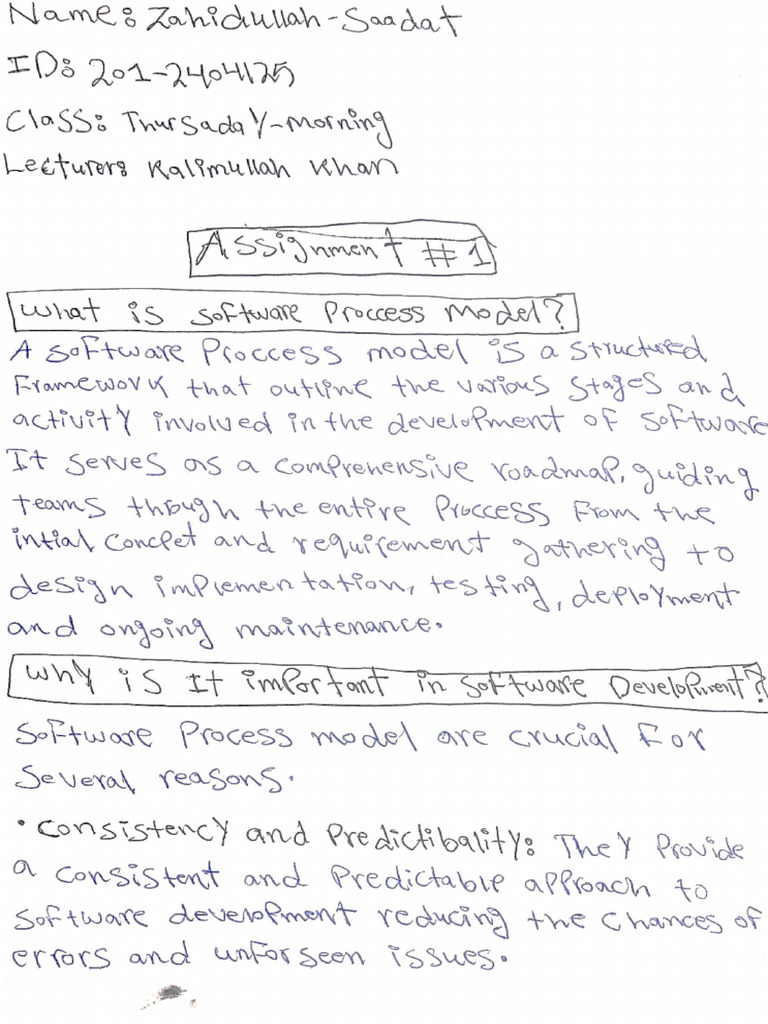 Name: Zahidullah-Saadat
ID: 201-2404125
Class: Thursaday-morning
Lecturer: Kalimullah Khan
Assignment #1
What is software Proccess model?
A software Proccess model is a structured
Framework that outline the various stages and
activity involved in the development of software
It serves as a comprehensive roadmap, guiding
teams through the entire Proccess From the
intial Concpet and requirement gathering to
design implementation, testing, deployment
and ongoing maintenance.
Why is It important in software Development?
Software Process model are crucial For
Several reasons.
• Consistency and Predictibality: They Provide
a consistent and Predictable approach to
software development reducing the chances of
errors and unforseen issues.